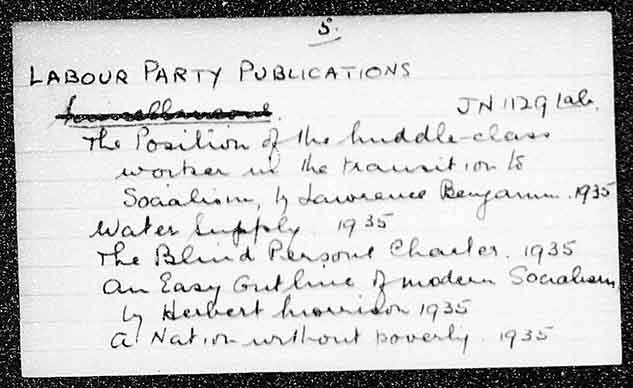 5.
LABOUR PARTY PUBLICATIONS
JN 1129 Lab.
The Position of the Middle-class
worker in the transition to
Socialism, by Lawrence Benjamin. 1935
Water Supply. 1935
The Blind Persons Charter. 1935
An Easy Outline of modern Socialism
by Herbert Morrison 1935
A Nation without poverty. 1935